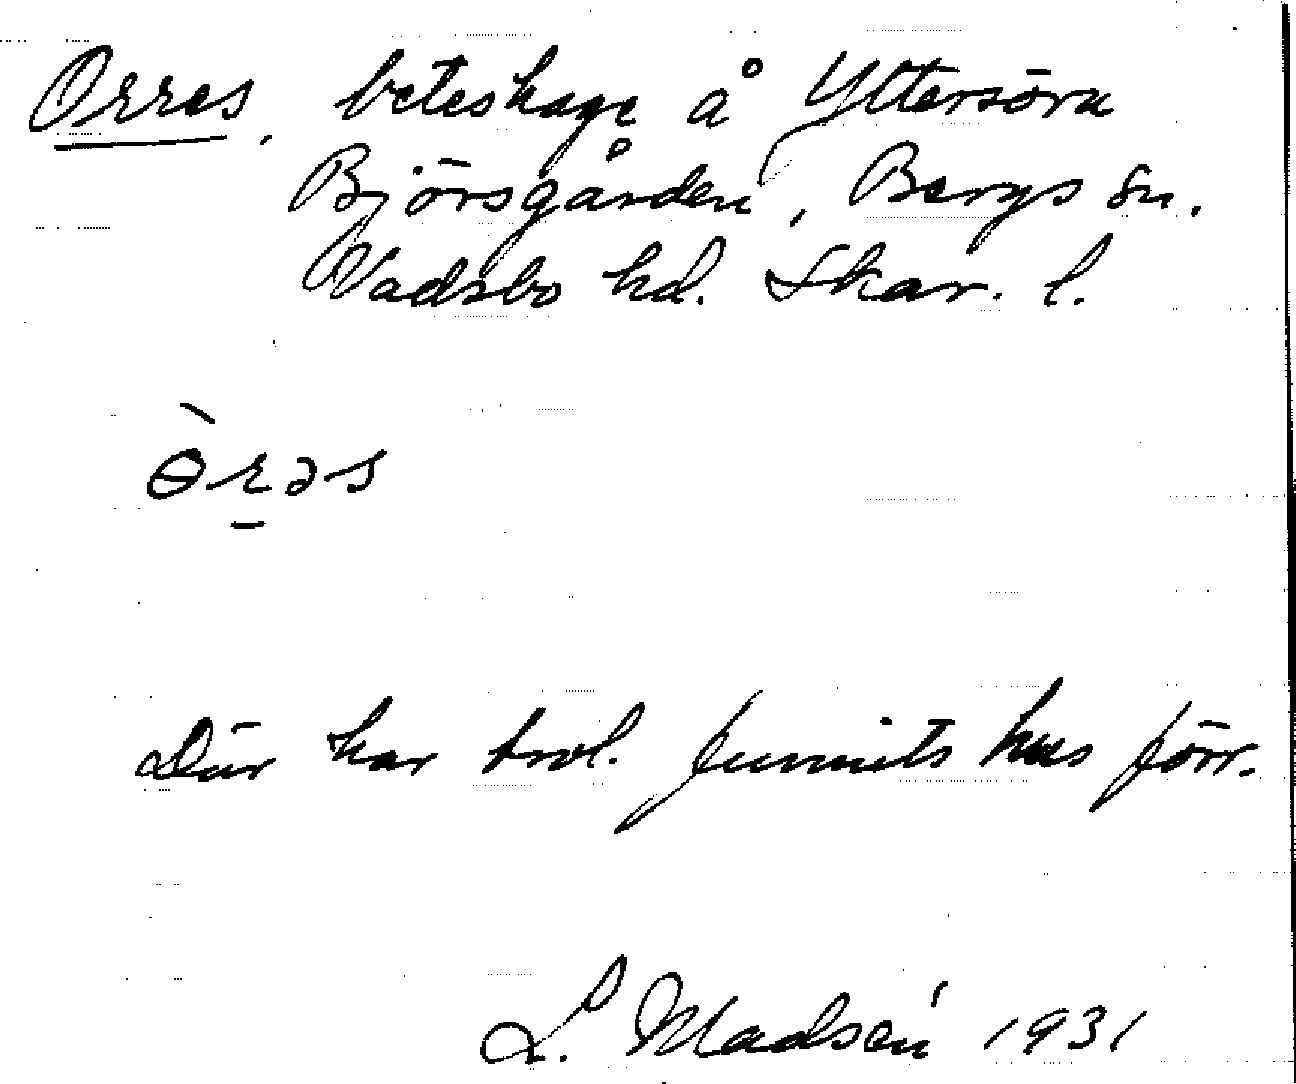 Orres, beteshage å Yttersörn
Björsgården, Bergs sn.
Vadsbo hd. Skar. l.
ɵ̀rəs
Där har trol. funnits hus förr.
L. Madsén 1931